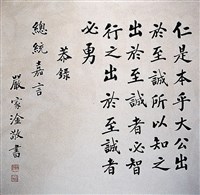 仁是本乎大公出
於至誠所以知之
出於至誠者必智
行之出於至誠者
必勇
恭錄
總統嘉言
嚴家淦敬書